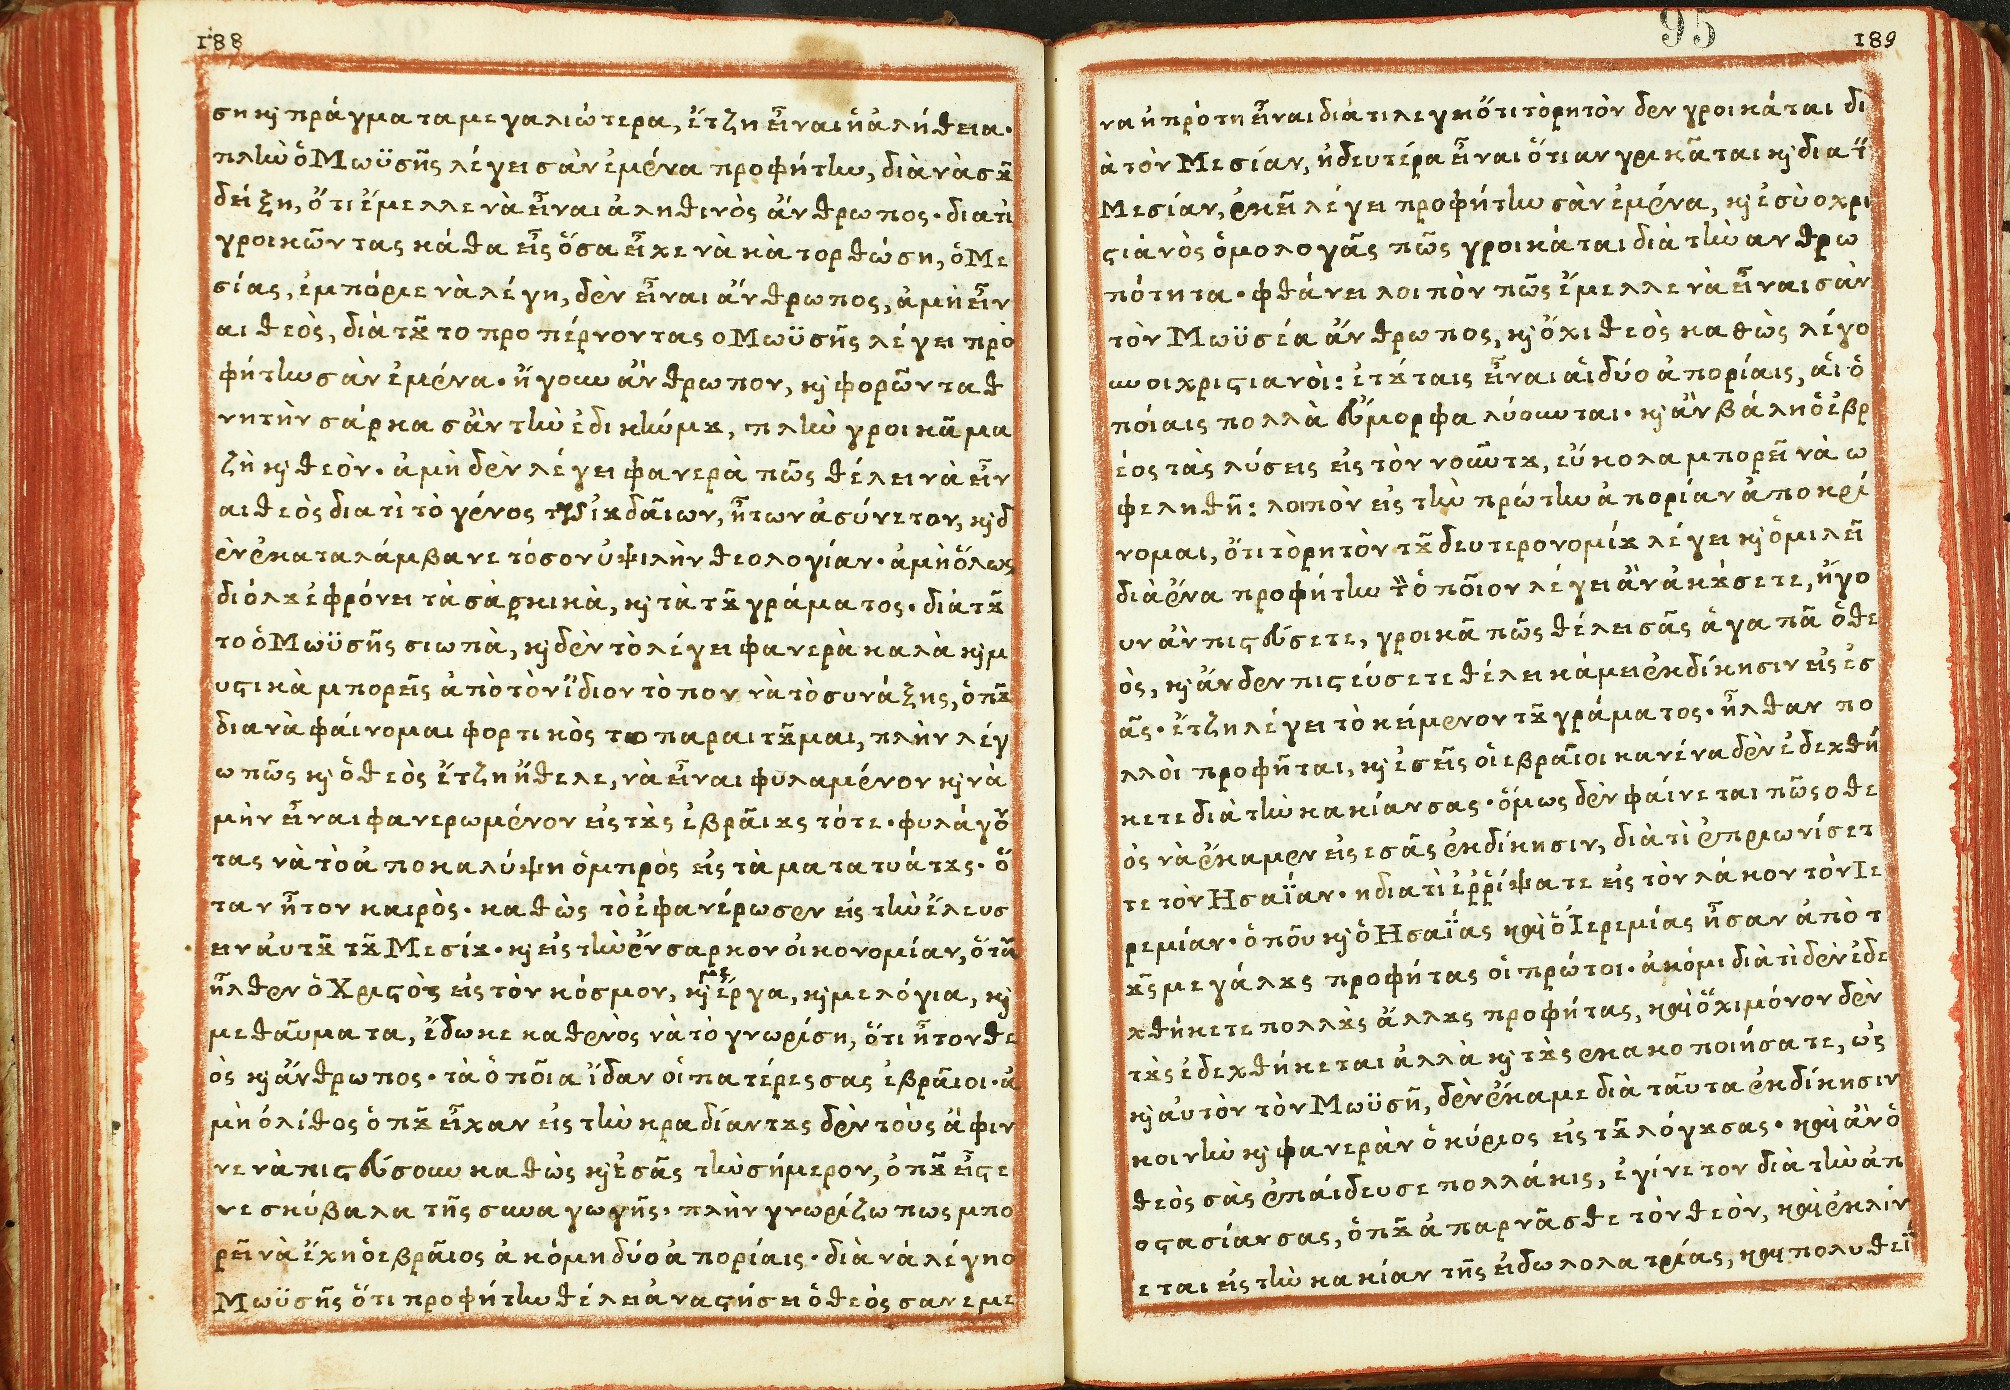 188
ση κ̀ πράγματα μεγαλιώτερα, ἔτζη εἶναι ἡ ἀλήθεια·
πλὴν ὁ Μωϋσῆς λέγει σὰν ἐμένα προφήτην, διὰ νὰ σȣ̃
δείξη, ὅτι ἔμελλε νὰ εἶναι ἀληθινὸς ἄνθρωπος· διατὶ
γροικῶντας κάθα εἷς ὅσα εἶχε νὰ κὰτορθώση, ὁ Με
σίας, ἐμπόριε νὰ λέγη, δὲν εἶναι ἄνθρωπος, ἀμὴ εἶν
αι θεὸς, διὰ τȣ̃το προπέρνοντας ο Μωϋσῆς λέγει προ
φήτην σὰν ἐμένα· ἤγουν ἄνθρωπον, κ̀ φορῶντα θ
νητὴν σάρκα σἂν τὴν ἐδικήν μȣ, πλὴν γροικᾶ μα
ζὴ κ̀ θεόν· ἀμὴ δὲν λέγει φανερὰ πῶς θέλει νὰ εἶν
αι θεὸς διατὶ τὸ γένος τῶν ἰȣδαίων, ἦτων ἀσύνετον, κ̀ δ
ὲν ἐκαταλάμβανε τόσον ὑψιλὴν θεολογίαν· ἀμὴ ὅλως
διόλȣ ἐφρόνει τὰ σάρκικὰ, κ̀ τὰ τȣ̃ γράματος· διὰ τȣ̃
το ὁ Μωϋσῆς σιωπὰ, κ̀ δὲν τὸ λέγει φανερὰ καλὰ κ̀ μ
υϛικὰ μπορεῖς ἀπὸ τὸν ἴδιον τὸπον νὰ τὸ συνάξης, ὁπȣ̃
δια νὰ φάινομαι φορτικὸς το παραιτȣ̃μαι, πλὴν λέγ
ω πῶς κ̀ ὁ θεὸς ἔτζη ἤθελε, νὰ εἶναι φυλαμένον κ̀ νὰ
μὴν εἶναι φανερωμένον εἰς τȣ̀ς ἐβραίȣς τότε· φυλάγον
τας νὰ τὸ ἀποκαλύψη ὀμπρὸς εἰς τὰ ματατυά τȣς· ὅ
ταν ἦτον καιρὸς· καθὼς τὸ ἐφανέρωσεν εἰς τὴν ἔλευσ
ειν ἀυτȣ̃ τȣ̃ Μεσίȣ· κ̀ εἰς τὴν ἔνσαρκον οἰκονομίαν, ὅταν
ἦλθεν ὁ Χριϛὸς εἰς τὸν κόσμον, κ̀ με ἔργα, κ̀ με λόγια, κ̀
με θαῦματα, ἔδωκε καθενὸς νὰ τὸ γνωρίση, ὅτι ἦτον θε
ὸς κ̀ ἄνθρωπος· τὰ ὁποῖα ἴδαν οἱ πατέρες σας ἐβραῖοι· ἀ
μὴ ὁ λίθος ὁπȣ̃ εἶχαν εἰς τὴν κραδίαν τȣς δὲν τοὺς ἄφιν
νε νὰ πιϛεύσουν καθὼς κ̀ ἐσᾶς τὴν σήμερον, ὁπȣ̃ εἶϛε
νε σκύβαλα τῆς συναγωγῆς· πλὴν γνωρίζω πως μπο
ρεῖ νὰ ἔχη ὁ εβραῖος ἀκόμη δύο ἀπορίαις· διὰ νὰ λέγη ο
Μωϋσῆς ὅτι προφήτην θέλει ἀναϛήσει ὁ θεὸς σαν εμε
95
189
να ἡ πρότη εἶναι διάτι λεγη ὅτι τὸ ρητὸν δεν γροικάται δι
ὰ τὸν Μεσίαν, ἡ δευτέρα εἶναι ὅτι αν γρικᾶται κ̀ διὰ τ̀
Μεσίαν, ἐκεῖ λέγει προφήτην σὰν ἐμένα, κ̀ ἐσὺ ο χρι
ϛιὰνὸς ὁμολογᾶς πῶς γροικάται διὰ τὴν ανθρω
πότητα· φθάνει λοιπὸν πῶς ἔμελλε νὰ εἶναι σὰν
τὸν Μωϋσέα ἄνθρωπος, κ̀ ὄχι θεὸς καθὼς λέγο
υν οι χριϛιανοὶ: ἐτȣ́ταις εἶναι ἁι δύο ἀπορίαις, ἁι ὁ
ποίαις πολλὰ ἔυμορφα λύουνται· κ̀ ἂν βάλη ὁ ἐβρ
έος τὰς λύσεις εἰς τὸν νοῦν τȣ, εὔκολα μπορεῖ νὰ ω
φεληθῆ: λοιπὸν εἰς τὴν πρώτην ἀπορίαν ἀποκρί
νομαι, ὅτι τὸ ρητὸν τȣ̃ δευτερονομίȣ λέγει κ̀ ὁμιλεῖ
διὰ ἕνα προφήτην τὸ ὁποῖον λέγει ἂν ἀκȣ́σετε, ἤγο
υν ἂν πιϛεύσετε, γροικᾶ πῶς θέλει σᾶς ἀγαπᾶ ὁ θε
ὸς, κ̀ ἄν δεν πιϛεύσετε θέλει κάμει ἐκδίκησιν εἰς ἐσ
ᾶς· ἔτζη λέγει τὸ κείμενον τȣ̃ γράματος· ἦλθαν πο
λλὸι προφῆται, κ̀ ἐσεῖς ὁι εβραῖοι κανένα δὲν ἐδεχθή
κετε διὰ τὴν κακίαν σας· ὅμως δὲν φαίνεται πῶς ο θε
ὸς νὰ ἔκαμεν εἰς εσᾶς ἐκδίκησιν, διὰτὶ ἐπριωνίσετ
τε τὸν Ησαΐαν· η διατὶ ἐῤῥίψατε εἰς τὸν λάκον τὸν Ιε
ρεμίαν· ὁποῦ κ̀ ὁ Ησαΐας καὶ ὁ Ἱερεμίας ἦσαν ἀπὸ τ
ȣ̃ς μεγάλȣς προφήτας ὁι πρώτοι· ἀκόμι διὰτὶ δὲν ἐδε
χθήκετε πολλȣ̀ς ἄλλȣς προφήτας, καὶ ὄχι μόνον δὲν
τȣ̀ς ἐδεχθήκεται ἀλλὰ κ̀ τȣ̀ς εκακοποιήσατε, ὡς
κ̀ αὐτὸν τὸν Μωϋσῆ, δὲν ἔκαμε διὰ ταῦτα ἐκδίκησιν
κοινὴν κ̀ φανερὰν ὁ κύριος εἰς τȣ̃ λόγȣ σας· καὶ ἂν ὁ
θεὸς σὰς ἐπάιδευσε πολλάκις, ἐγίνετον διὰ τὴν ἀπ
οϛασίαν σας, ὁπȣ̃ ἀπαρνᾶσθε τὸν θεὸν, καὶ ἐκλίν
εται εἰς τὴν κακίαν τῆς εἰδωλολατρίας, καὶ πολυθεΐ